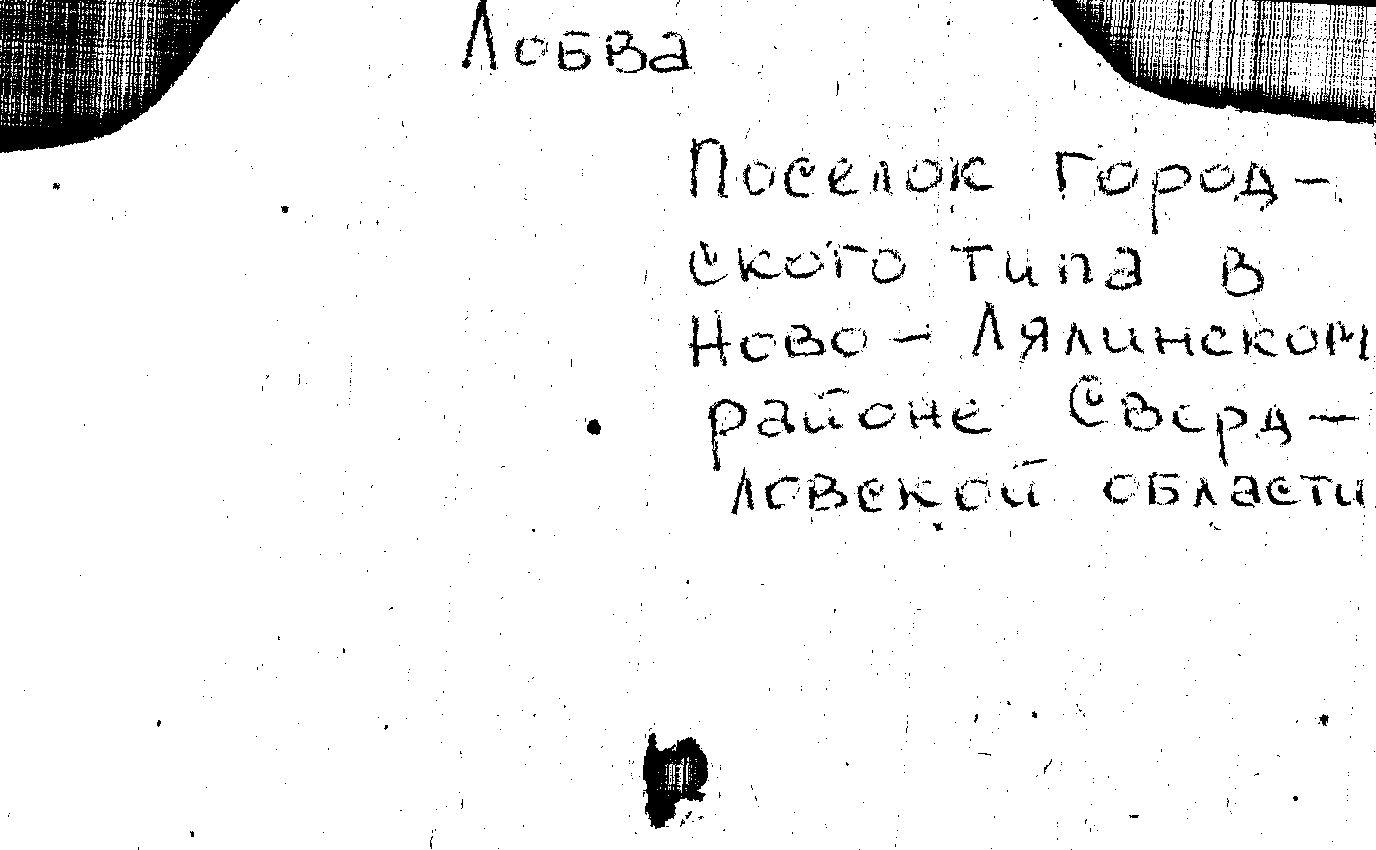 Лобва
Поселок город-
ского типа в
Ново-Лялинском
районе Сверд-
ловской области